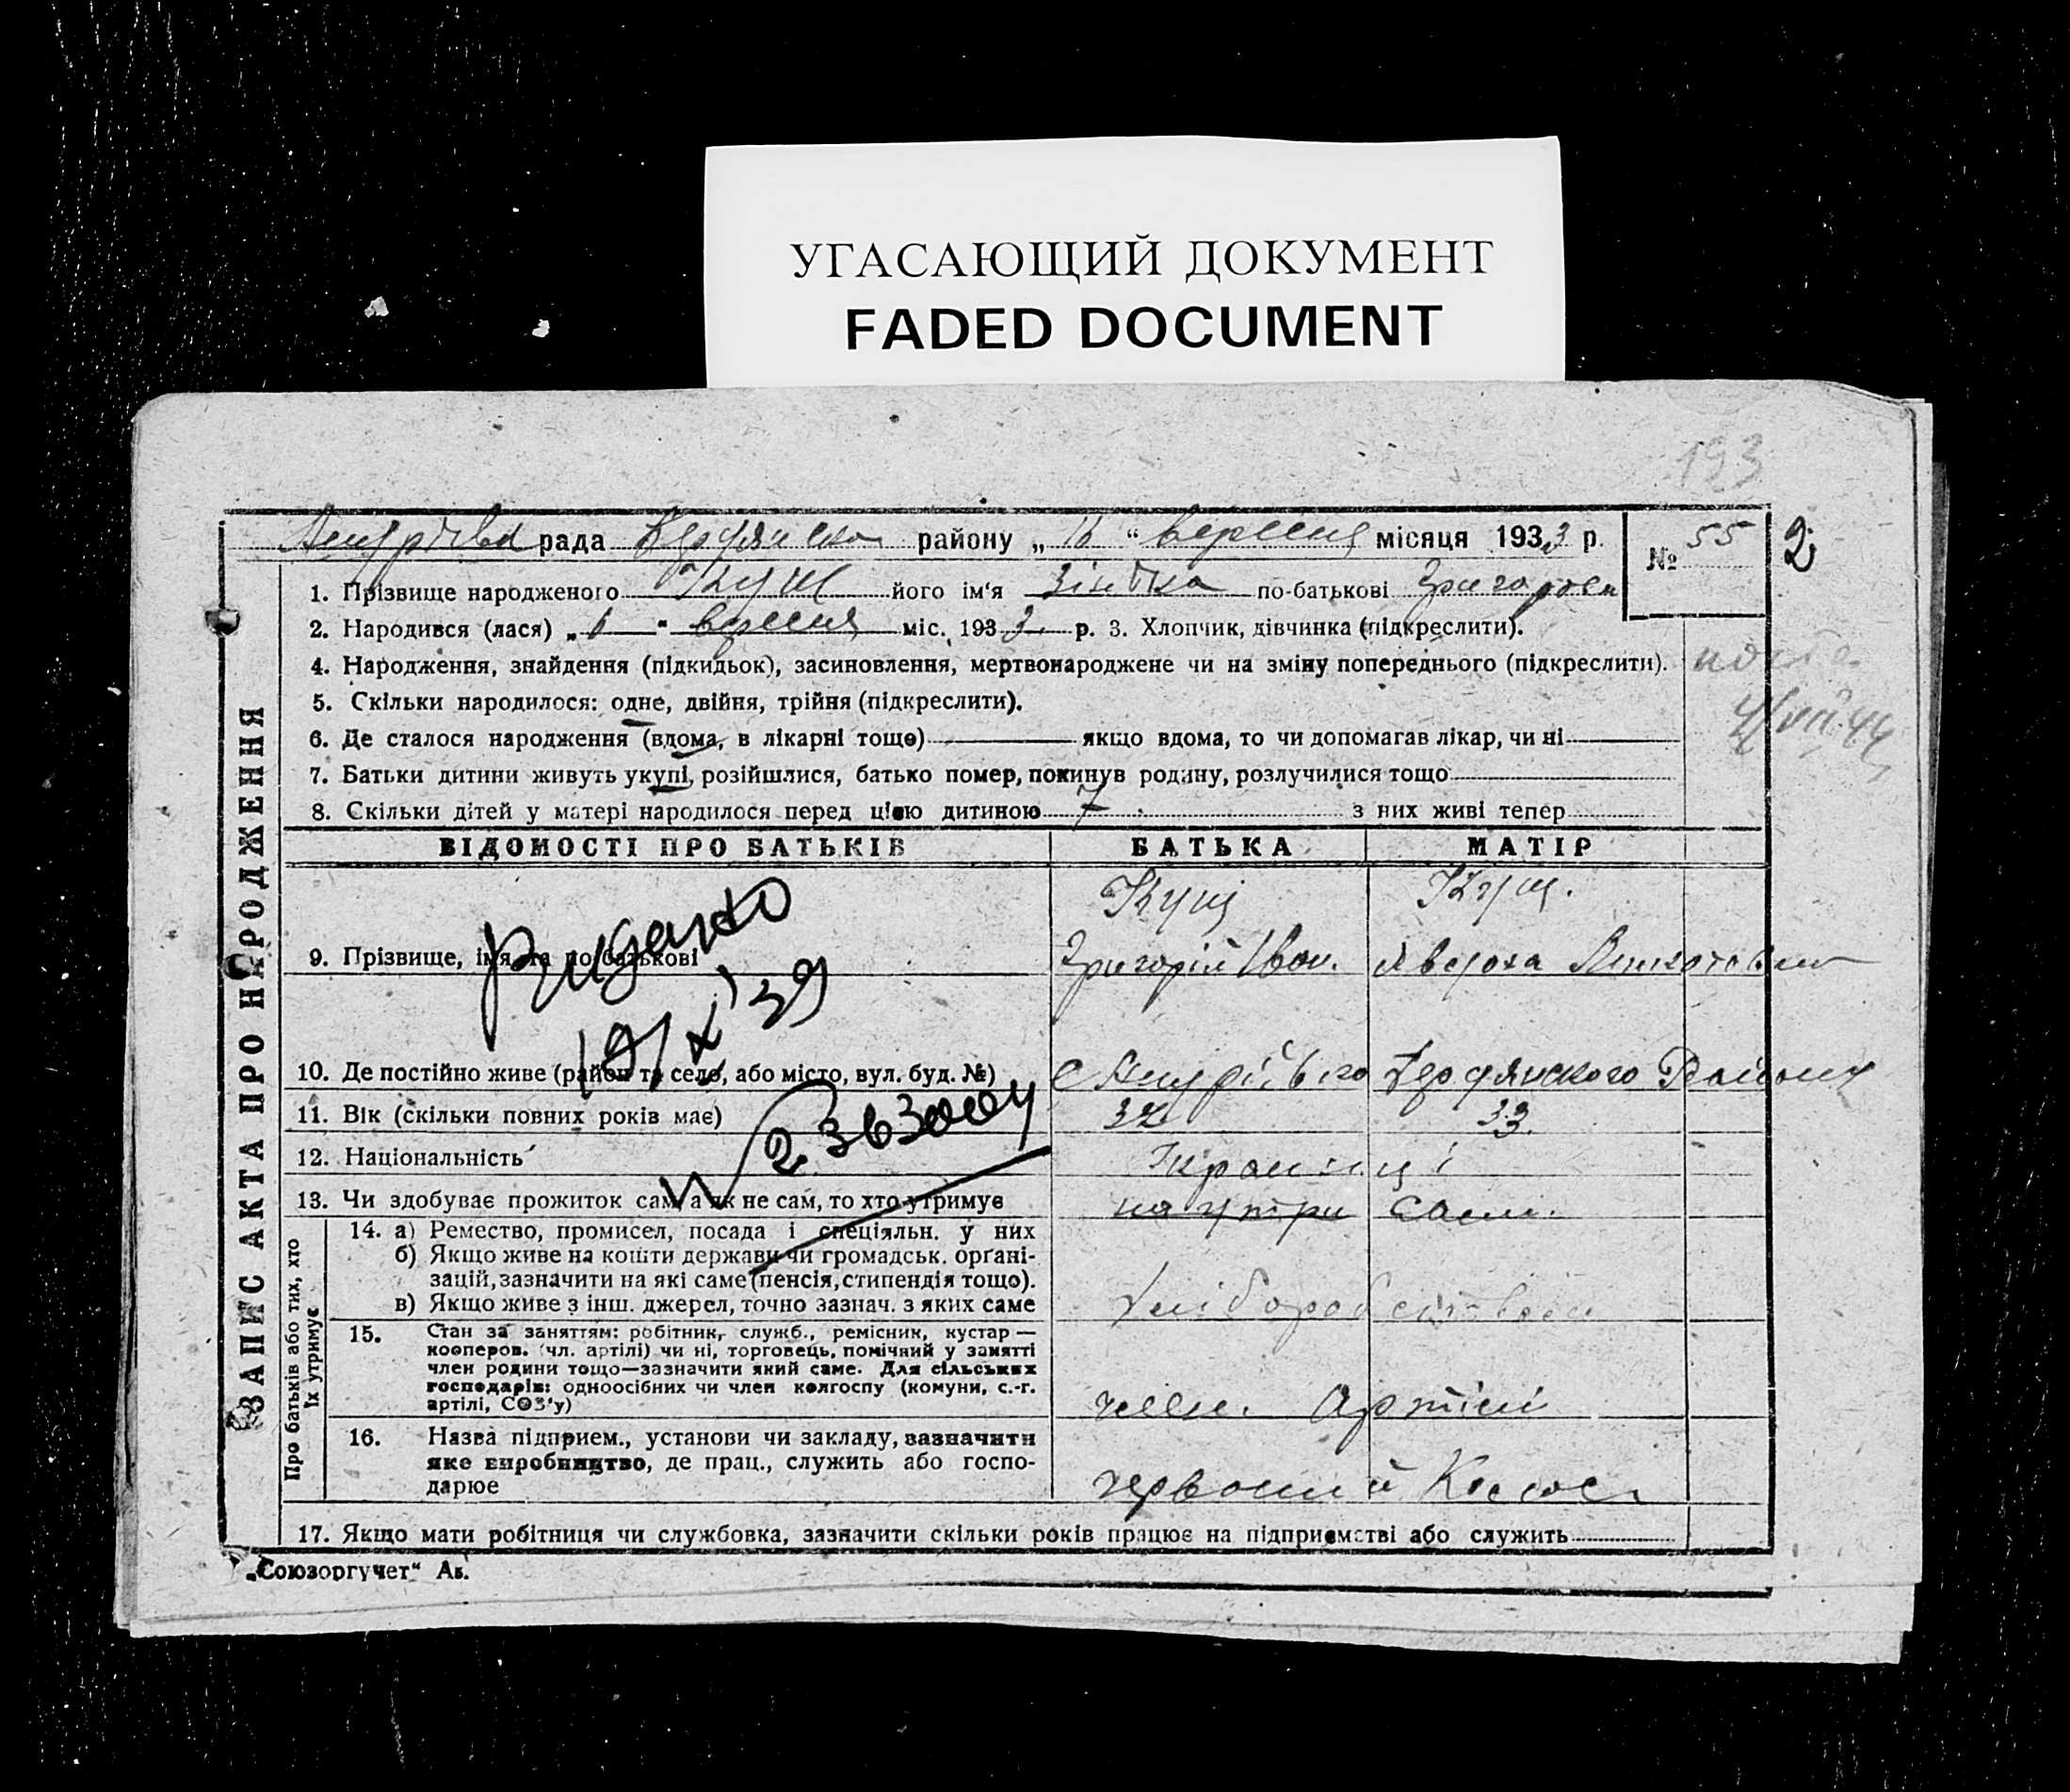 УГАСАЮЩИЙ ДОКУМЕНТ
FADED DOCUMENT
193
рада району „16“ вересня місяця 1933 р. № 55 2
1. Прізвище народженого Кущ його ім'я Зінька по-батькові Григоров
2. Народився (лася) „6“ вересня міс. 1933 р. 3. Хлопчик, дівчинка (підкреслити).
4. Народження, знайдення (підкидьок), засиновлення, мертвонароджене чи на зміну попереднього (підкреслити).
5. Скільки народилося: одне, двійня, трійня (підкреслити).
6. Де сталося народження (вдома, в лікарні тощо) якщо вдома, то чи допомагав лікар, чи ні
7. Батьки дитини живуть укупі, розійшлися, батько помер, покинув родину, розлучилися тощо
8. Скільки дітей у матері народилося перед цією дитиною 7 з них живі тепер
ЗАПИС АКТА ПРО НАРОДЖЕННЯ
ВІДОМОСТІ ПРО БАТЬКІВ БАТЬКА МАТІР
Кущ Кущ.
9. Прізвище, ім'я та по батькові Григорій Іван. Явдоха
Видано
19/X 39
10. Де постійно живе (район та село, або місто, вул. буд. №) с Району
11. Вік (скільки повних років має) 32 33.
12. Національність Українці
13. Чи здобуває прожиток сам, а як не сам, то хто утримує на утри Сами.
Про батьків або тих, хто їх утримує
14. а) Ремество, промисел, посада і спеціяльн. у них
б) Якщо живе на кошти держави чи громадськ. орґані-
зацій, зазначити на які саме (пенсія, стипендія тощо).
в) Якщо живе з інш. джерел, точно зазнач. з яких саме Хліборобством
15. Стан за заняттям: робітник, служб., ремісник, кустар —
кооперов. (чл. артілі) чи ні, торговець, помічний у занятті
член родини тощо—зазначити який саме. Для сільських
господарів: одноосібних чи член колгоспу (комуни, с.-г.
артілі, СОЗ'у) член. Артілі
16. Назва підприєм., установи чи закладу, зазначити
яке виробництво, де прац., служить або госпо-
дарює червоний Колос
17. Якщо мати робітниця чи службовка, зазначити скільки років працює на підприємстві або служить
„Союзоргучет“